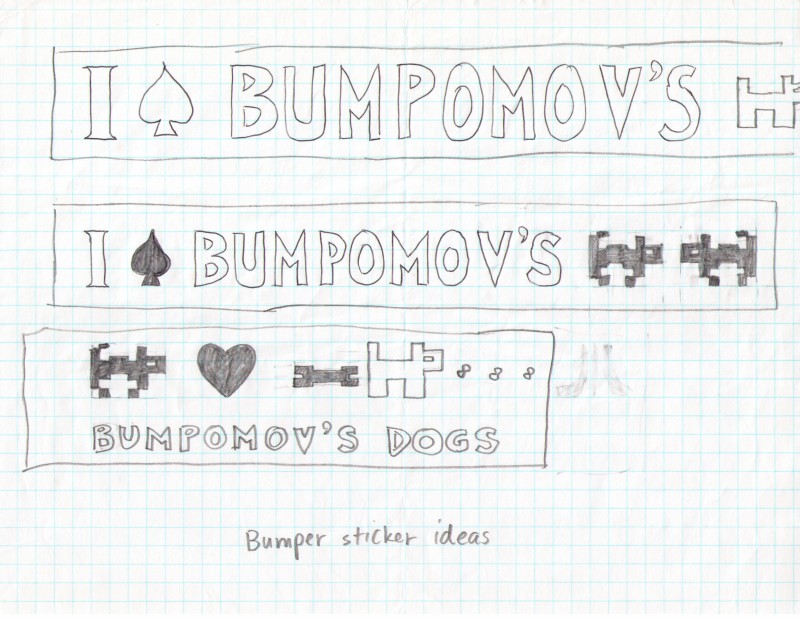 I ♠ BUMPOMOV'S
I ♠ BUMPOMOV'S
BUMPOMOV'S DOGS
Bumper sticker ideas